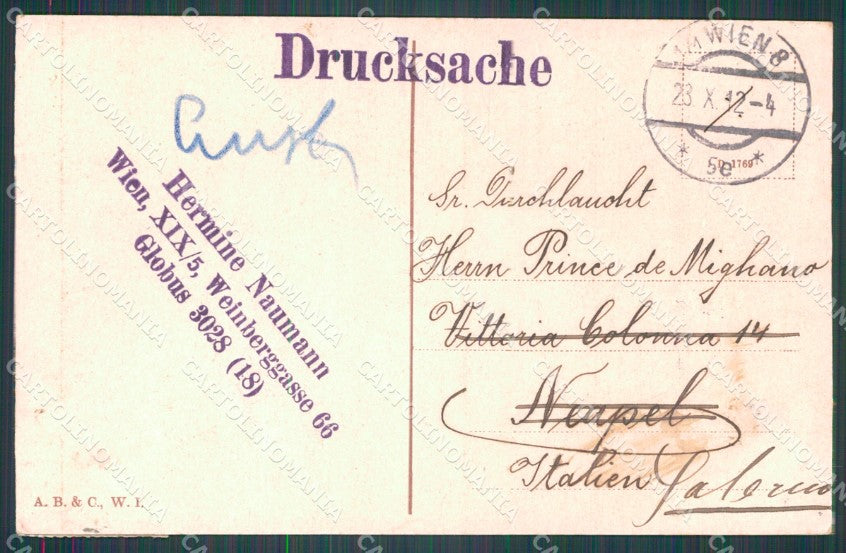 Drucksache
WIEN 8
23 X 12-4
* 5e *
1769
Hermine Naumann
Wien, XIX/5, Weinberggasse 66
Globus 3028 (18)
Sr. Durchlaucht
Herrn Prince de Mighano
Vittoria Colonna 14
Neapel
Italien Salerno
A. B. & C., W. I.
CARTOLINOMANIA